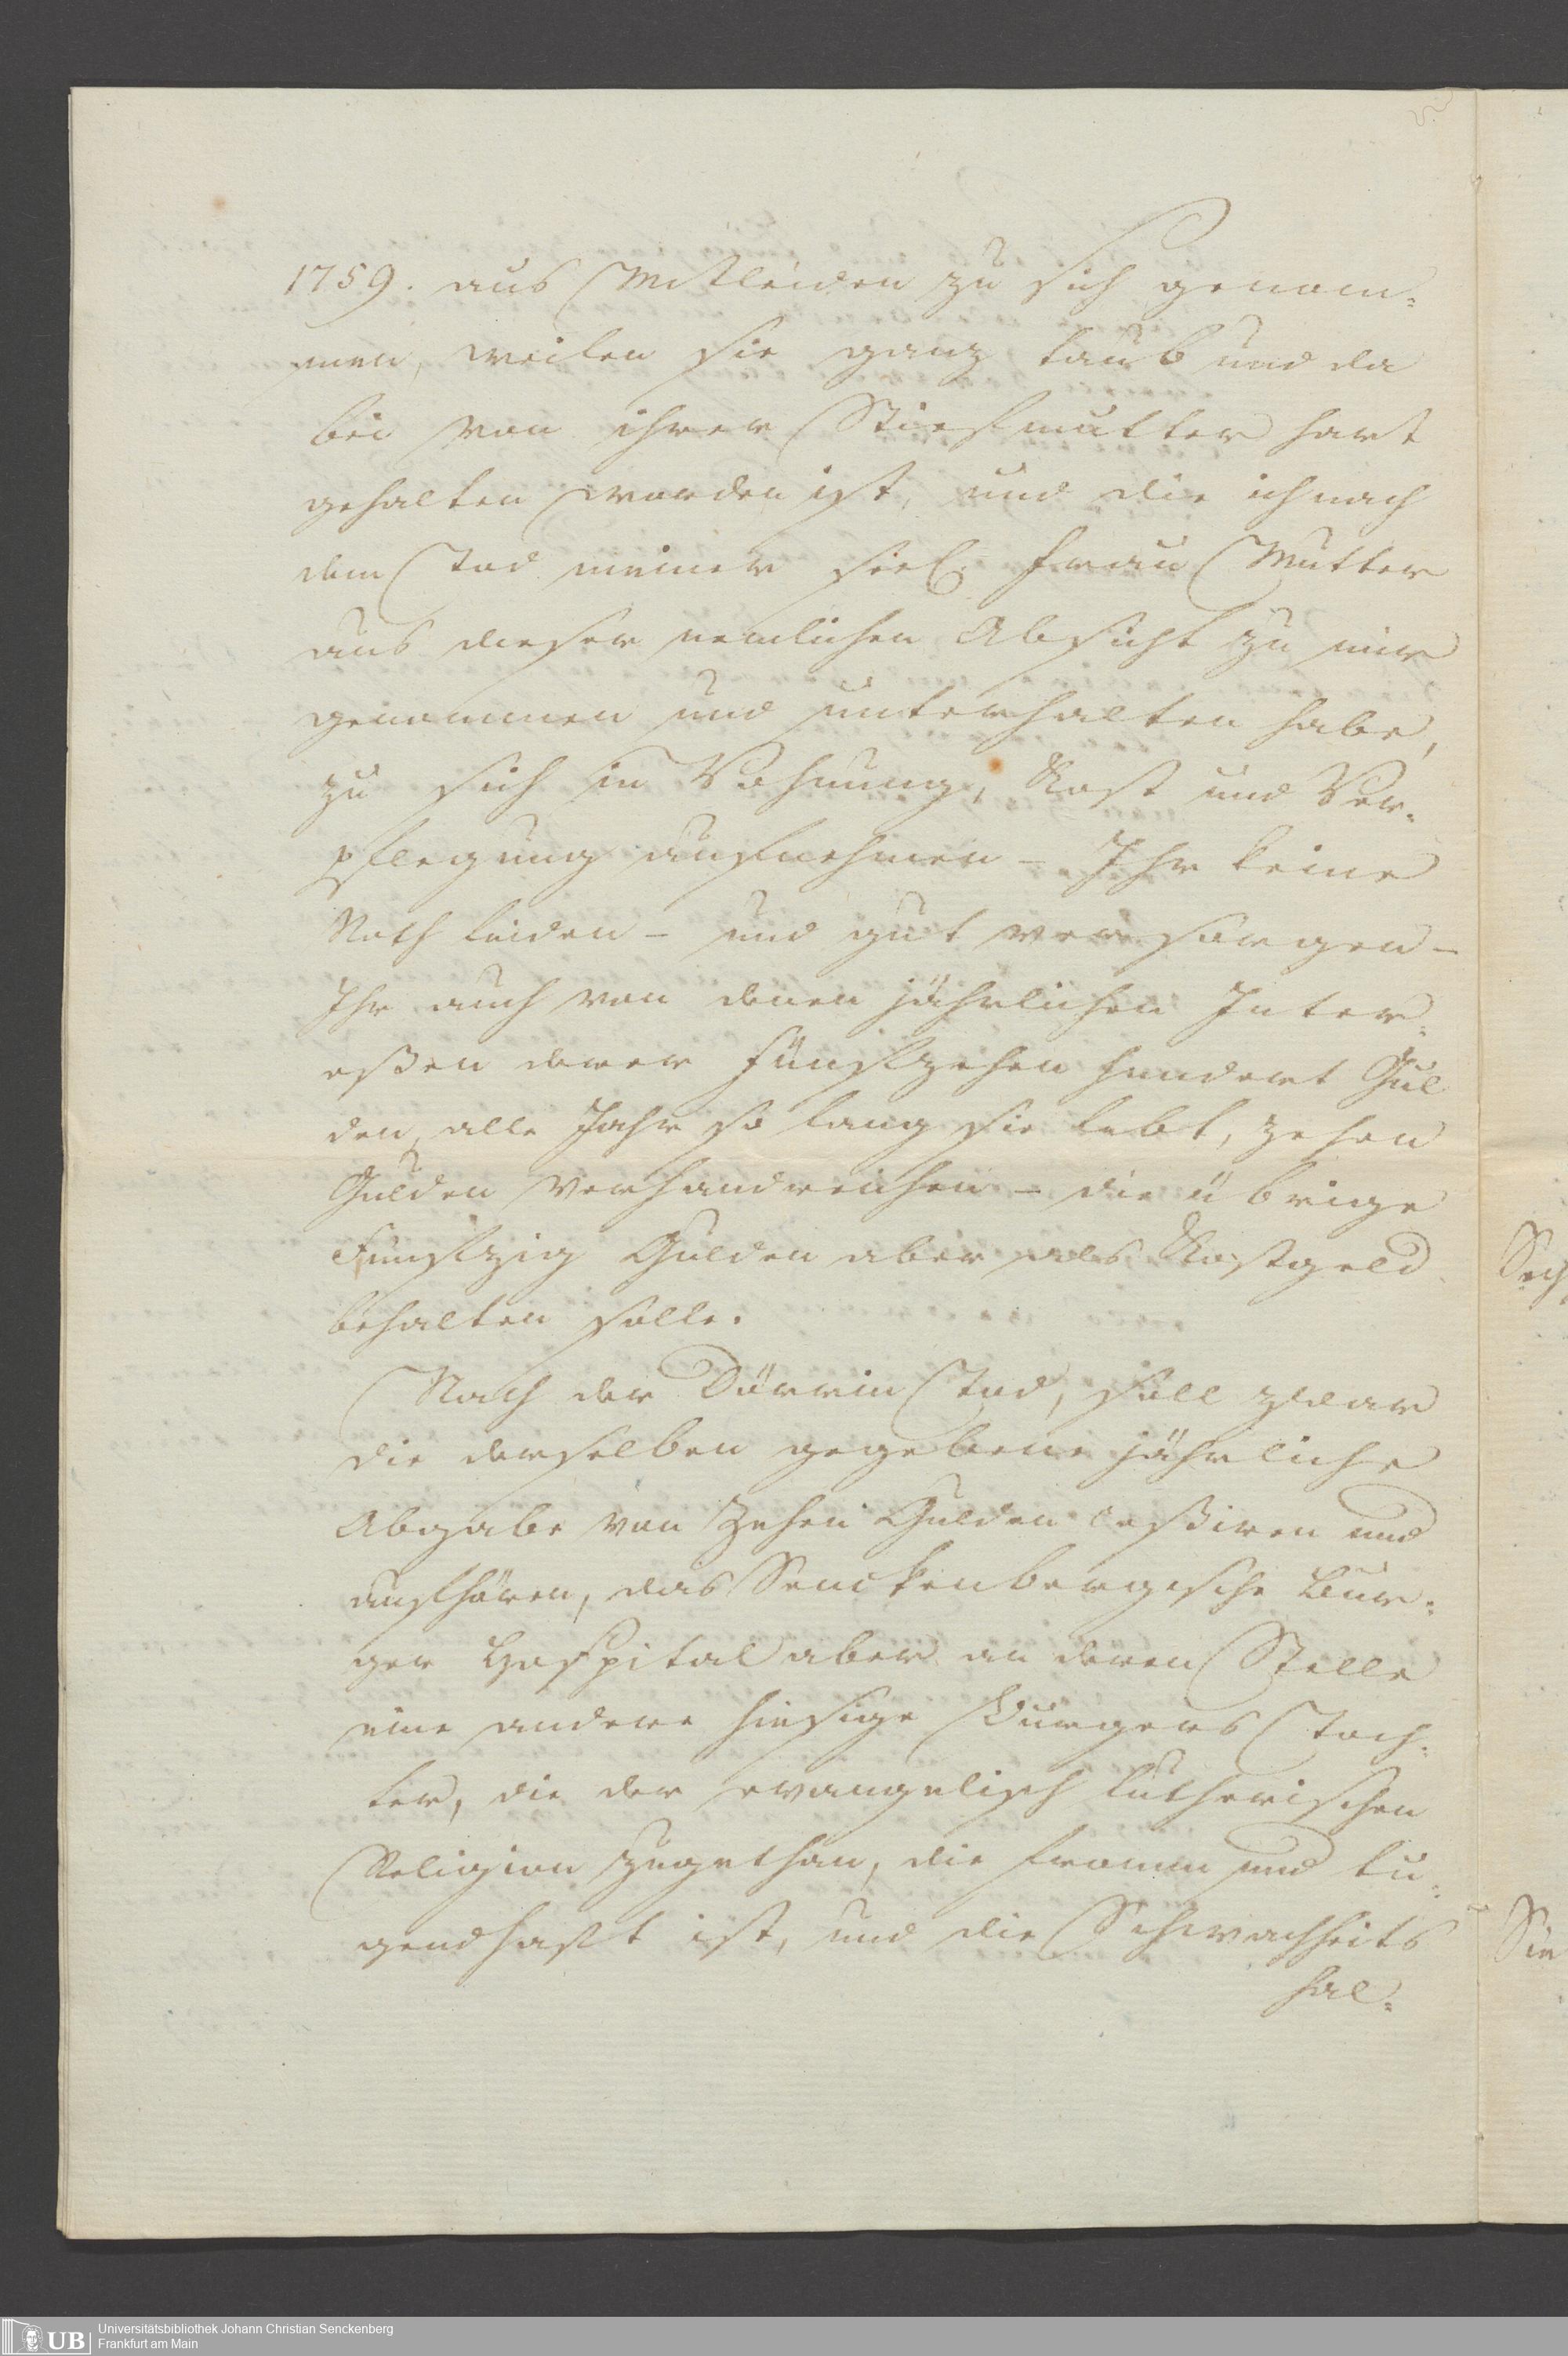 1759. aus Mitleiden zu sich genom=
men, weilen sie ganz taub und da
bei von ihrer Stiefmutter hart
gehalten worden ist, und die ich nach
dem Tod meiner seel. Frau Mutter
aus dieser nemlichen Absicht zu mir
genommen und unterhalten habe,
zu sich in Wohnung, Kost und Ver=
pflegung aufnehmen - Ihr keine
Noth leiden - und gut versorgen -
Ihr auch von denen jährlichen Inter=
eßen derer fünfzehen hundert Gul
den, alle Jahr so lang sie lebt, zehen
Gulden verhandreichen - die übrige
Funfzig Gulden aber als Kostgeld
behalten solle.
Nach der Dörrin Tod, soll zwar
die derselben gegebene jährliche
Abgabe von Zehen Gulden ceßiren und
aufhören, das Senckenbergische Bur=
ger Hospital aber an deren Stelle
eine andere hiesige Burgers Toch=
ter, die der evangelisch lutherischen
Religion zugethan, die fromm und tu=
gendhafft ist, und die Schwachheits
hal=
Sech
Sie
UB
Universitätsbibliothek Johann Christian Senckenberg
Frankfurt am Main